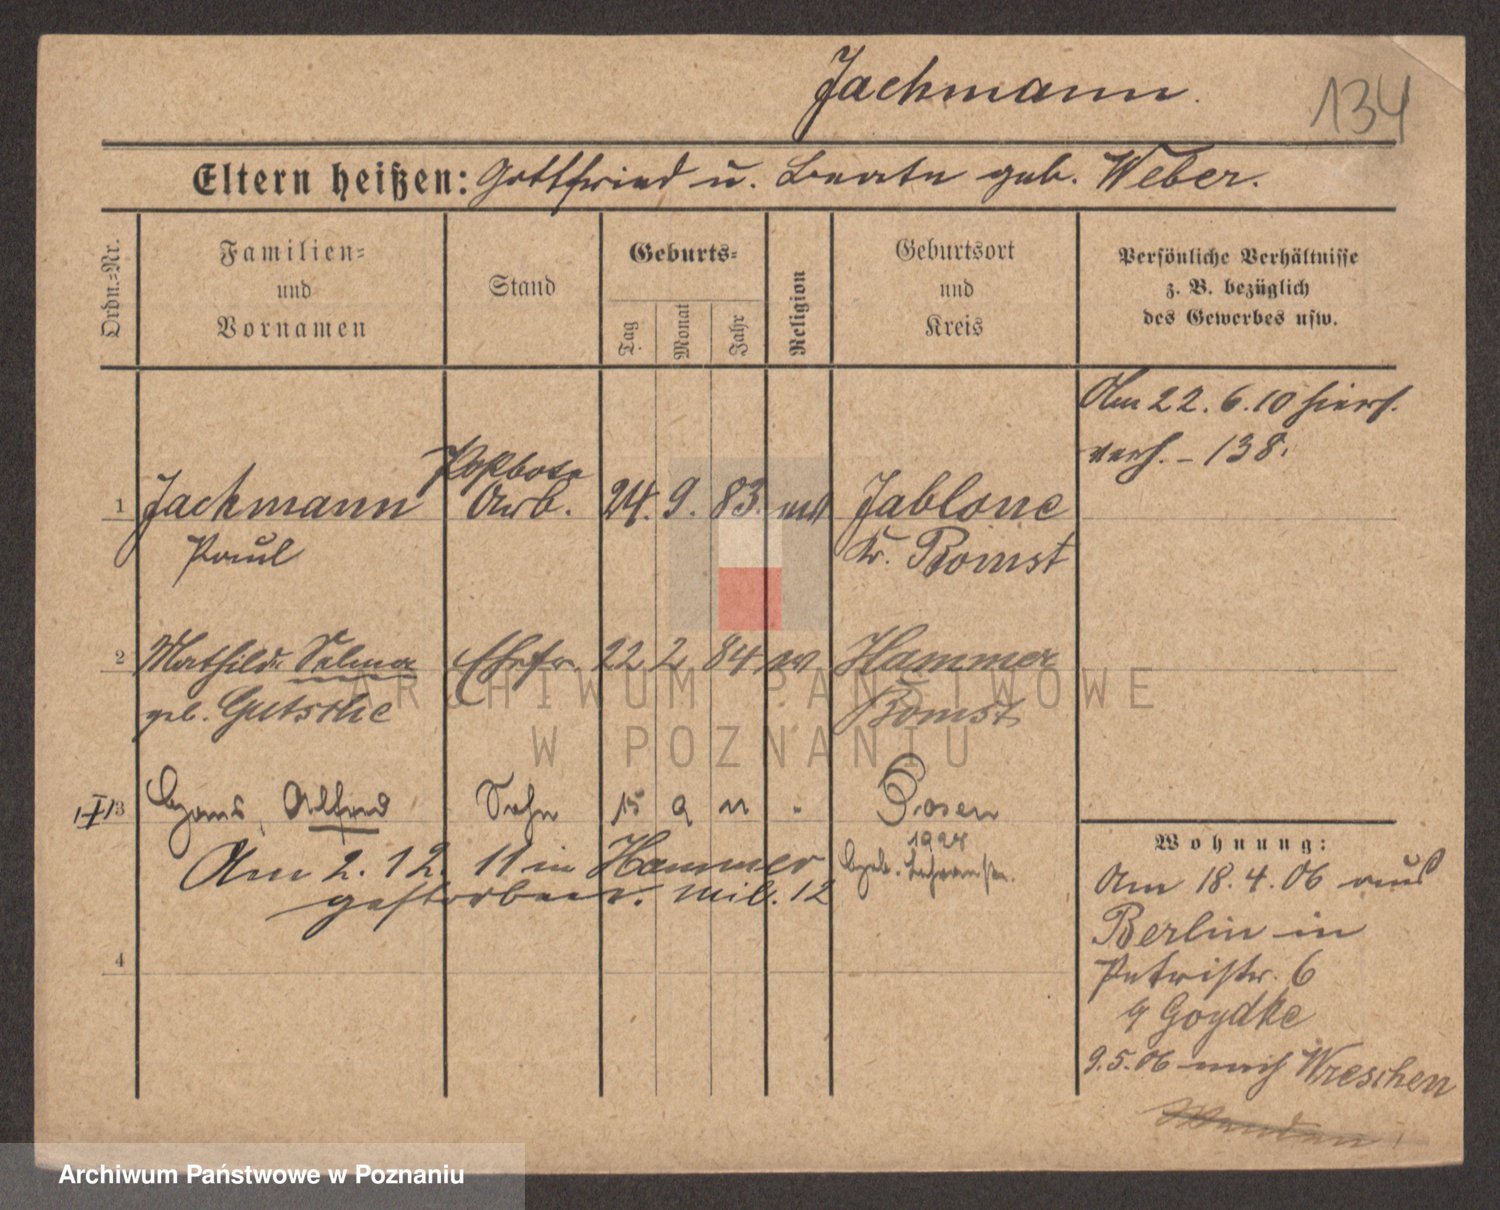 Jachmann.
134
Eltern heißen: Gottfried u. Beate geb. Weber.
Ordn.-Nr.
Familien-
und
Vornamen
Stand
Geburts-
Tag
Monat
Jahr
Religion
Geburtsort
und
Kreis
Persönliche Verhältnisse
z. B. bezüglich
des Gewerbes usw.
Am 22. 6. 10 hiers.
verh. - 138.
Postbote
1 Jachmann Arb. 24. 9. 83. Jablone
Paul Kr. Bomst
2 Mathilde Selma Ehefr. 22 2 84 ev Hammer
geb. Gutsche Bomst
3 Hans, Alfred Sohn 15 9 11 " Posen
1924
Am 2. 12. 11 in Hammer
gestorben. Mil. 12
4
Wohnung:
Am 18. 4. 06 aus
Berlin in
Petristr. 6
Goydke
9. 5. 06 nach Wreschen
ARCHIWUM PAŃSTWOWE
W POZNANIU
Archiwum Państwowe w Poznaniu